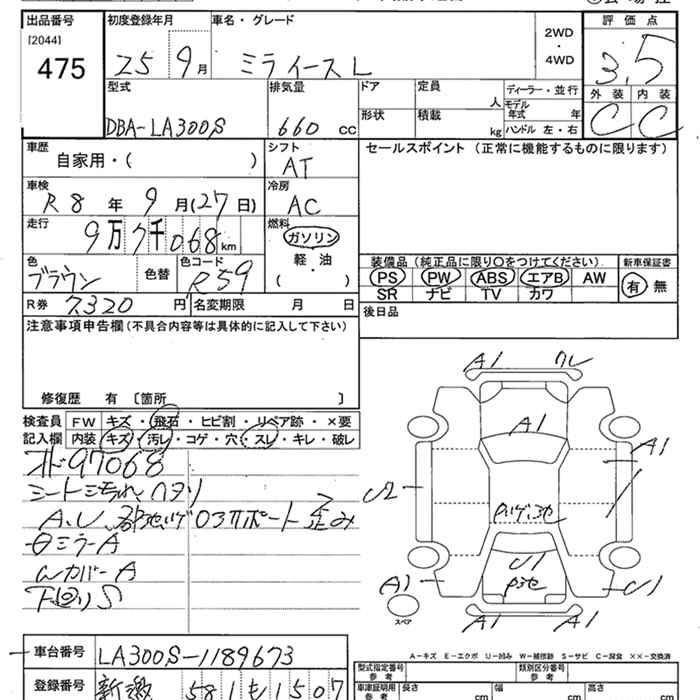 出品番号 初度登録年月 車名・グレード 評価点
[2044]
475
25 9月 ミライース L
2WD
・
4WD
3.5
外装 内装
C C
型式 排気量 ドア 定員 人 ディーラー・並行
DBA-LA300S 660 cc 形状 積載 kg モデル年式 年
ハンドル 左・右
車歴 シフト セールスポイント (正常に機能するものに限ります)
自家用・( ) AT
車検 冷房
R8年9月(27日) AC
走行 燃料
9万7千068km ガソリン
軽・油
( )
色 色替 色コード
ブラウン R59
装備品(純正品に限り○をつけてください) 新車保証書
PS PW ABS エアB AW 有 無
SR ナビ TV カワ
R券 7320円 名変期限 月 日 後日品
注意事項申告欄(不具合内容等は具体的に記入して下さい)
修復歴 有〔箇所 〕
検査員 FW キズ・飛石・ヒビ割・リペア跡・×要
記入欄 内装 キズ・汚レ・コゲ・穴・スレ・キレ・破レ
97068
シート
歪み
ミラーA
WカバーA
下回りS
A1
A1
A1
U2
U1
A1 U1
スペア
A1 A1
A-キズ E-エクボ U-凹み W-補修跡 S-サビ C-腐食 ××-交換済
車台番号 LA300S-1189673
型式指定番号 参考 類別区分番号 参考
登録番号 581 も 1507
車庫証明用 参考 長さ cm 幅 cm 高さ cm